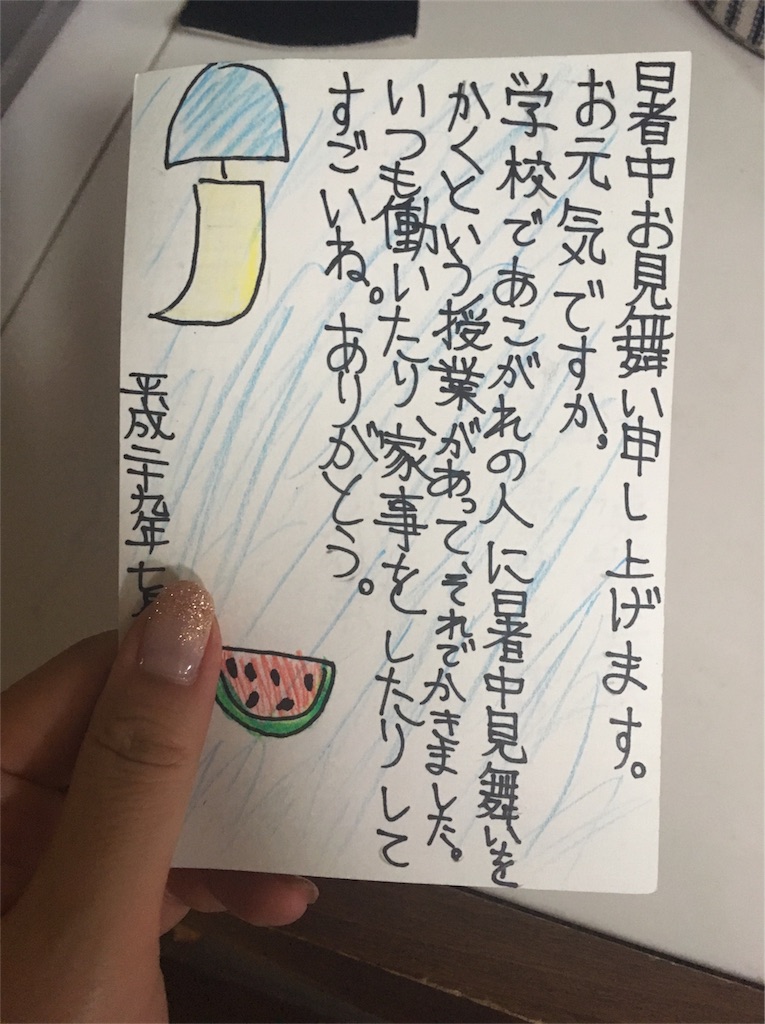 暑中お見舞い申し上げます。
お元気ですか。
学校であこがれの人に暑中見舞いを
かくという授業があって、それでかきました。
いつも働いたり、家事をしたりして
すごいね。ありがとう。
平成二十九年七月